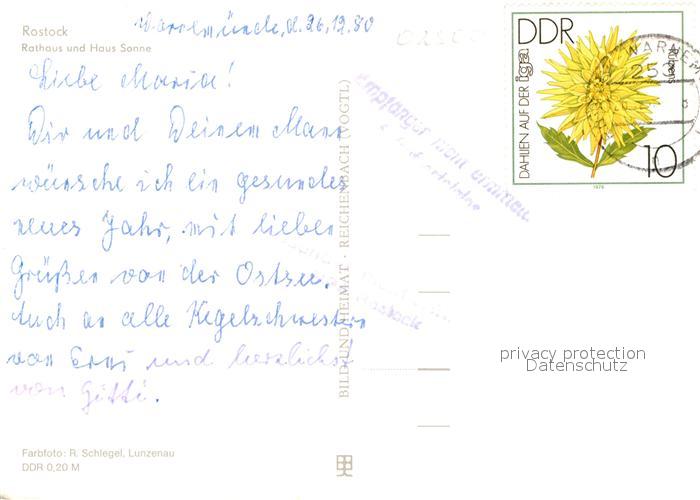 Rostock
Rathaus und Haus Sonne
Warnemünde, d. 26.12.80
Liebe Maria!
Dir und Deinem Mann
wünsche ich ein gesundes
neues Jahr, mit lieben
Grüßen von der Ostsee.
Auch an alle Kegelschwestern
von Erni und herzlichst
von Gitti.
Farbfoto: R. Schlegel, Lunzenau
DDR 0,20 M
BILD UND HEIMAT · REICHENBACH (VOGTL)
Empfänger nicht ermittelt
Rostock
DDR
DAHLIEN AUF DER iga
Rubens
10
1979
WARNEM
25
privacy protection
Datenschutz